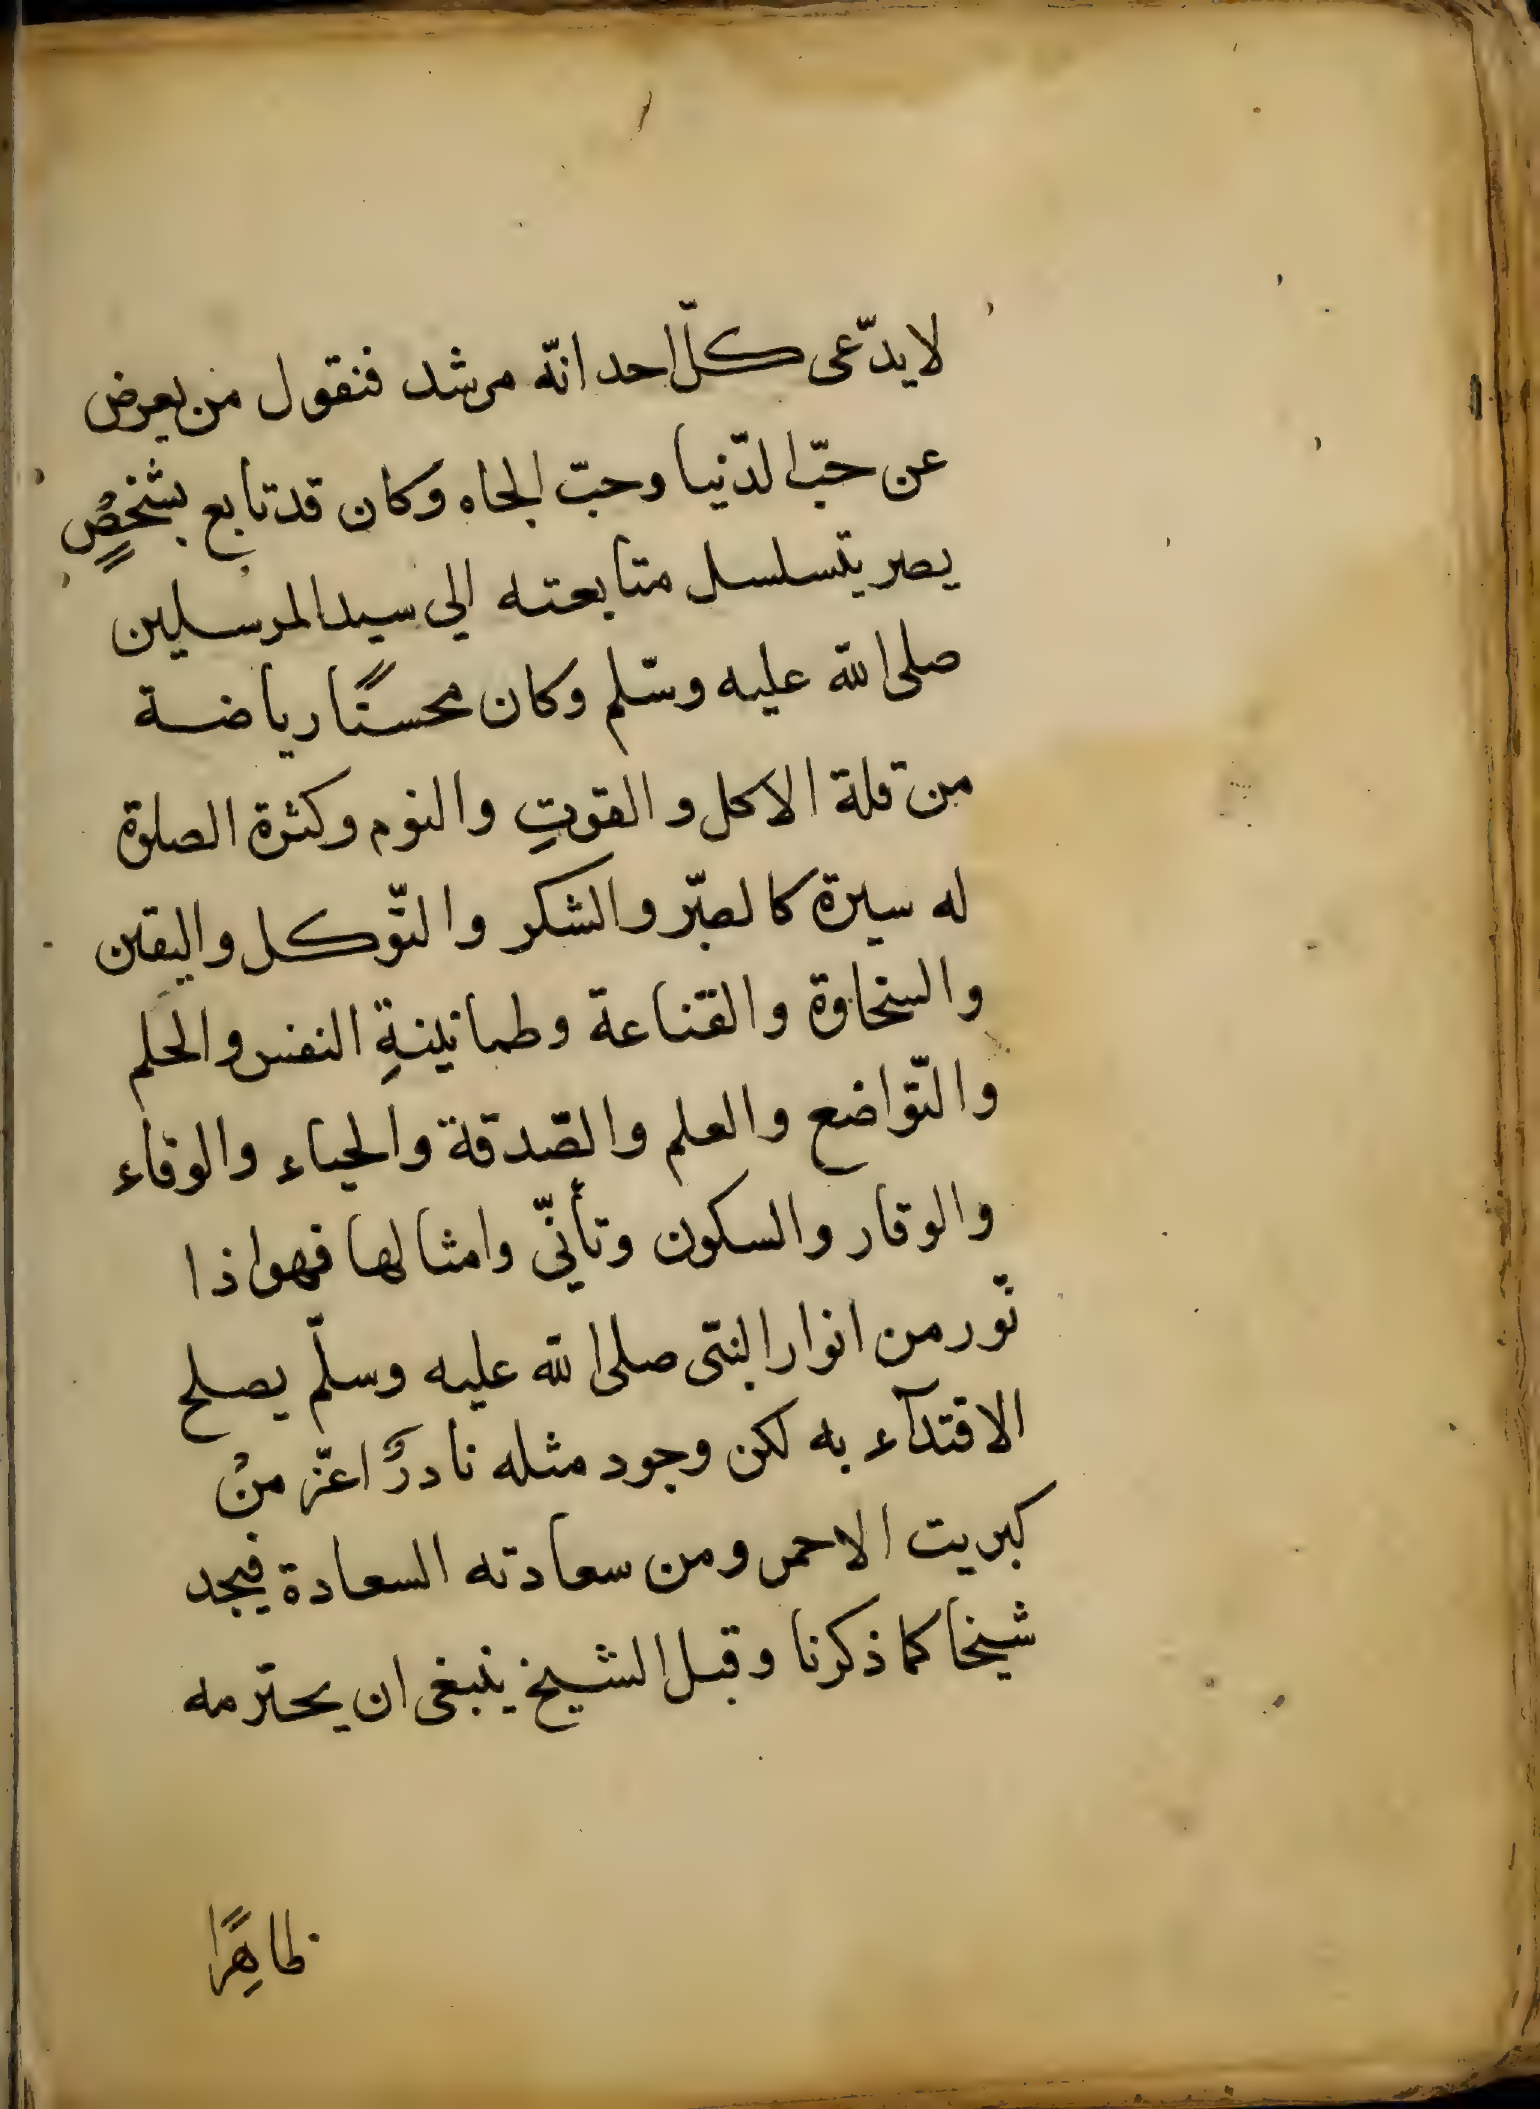 لا يدّعى كلّ احد انّه مرشد فنقول من يعرض
عن حبّ الدّنيا وحبّ الجاه وكان قد تابع بشخصٍ
يصر يتسلسل متابعته الى سيد المرسلين
صلى الله عليه وسّلم وكان محسنًا رياضة
من قلة الاكل و القوتِ والنوم وكثرة الصلوة
له سيرة كالصبّر والشكر والتّوكل واليقين
والسخاوة والقناعة وطمانينةِ النفس والحَلم
والتّواضع والعلم والصّدقة والحياء والوفاء
والوقار والسكون وتأنّي وامثالها فهو اذا
نور من انوار النبّى صلى الله عليه وسلّم يصلح
الاقتدآء به لكن وجود مثله نادرٌ اعّز منْ
كبريت الاحمر ومن سعادته السعادة فيجد
شيخا كما ذكرنا وقبل الشيخ ينبغى ان يحترمه
ظاهِرًا